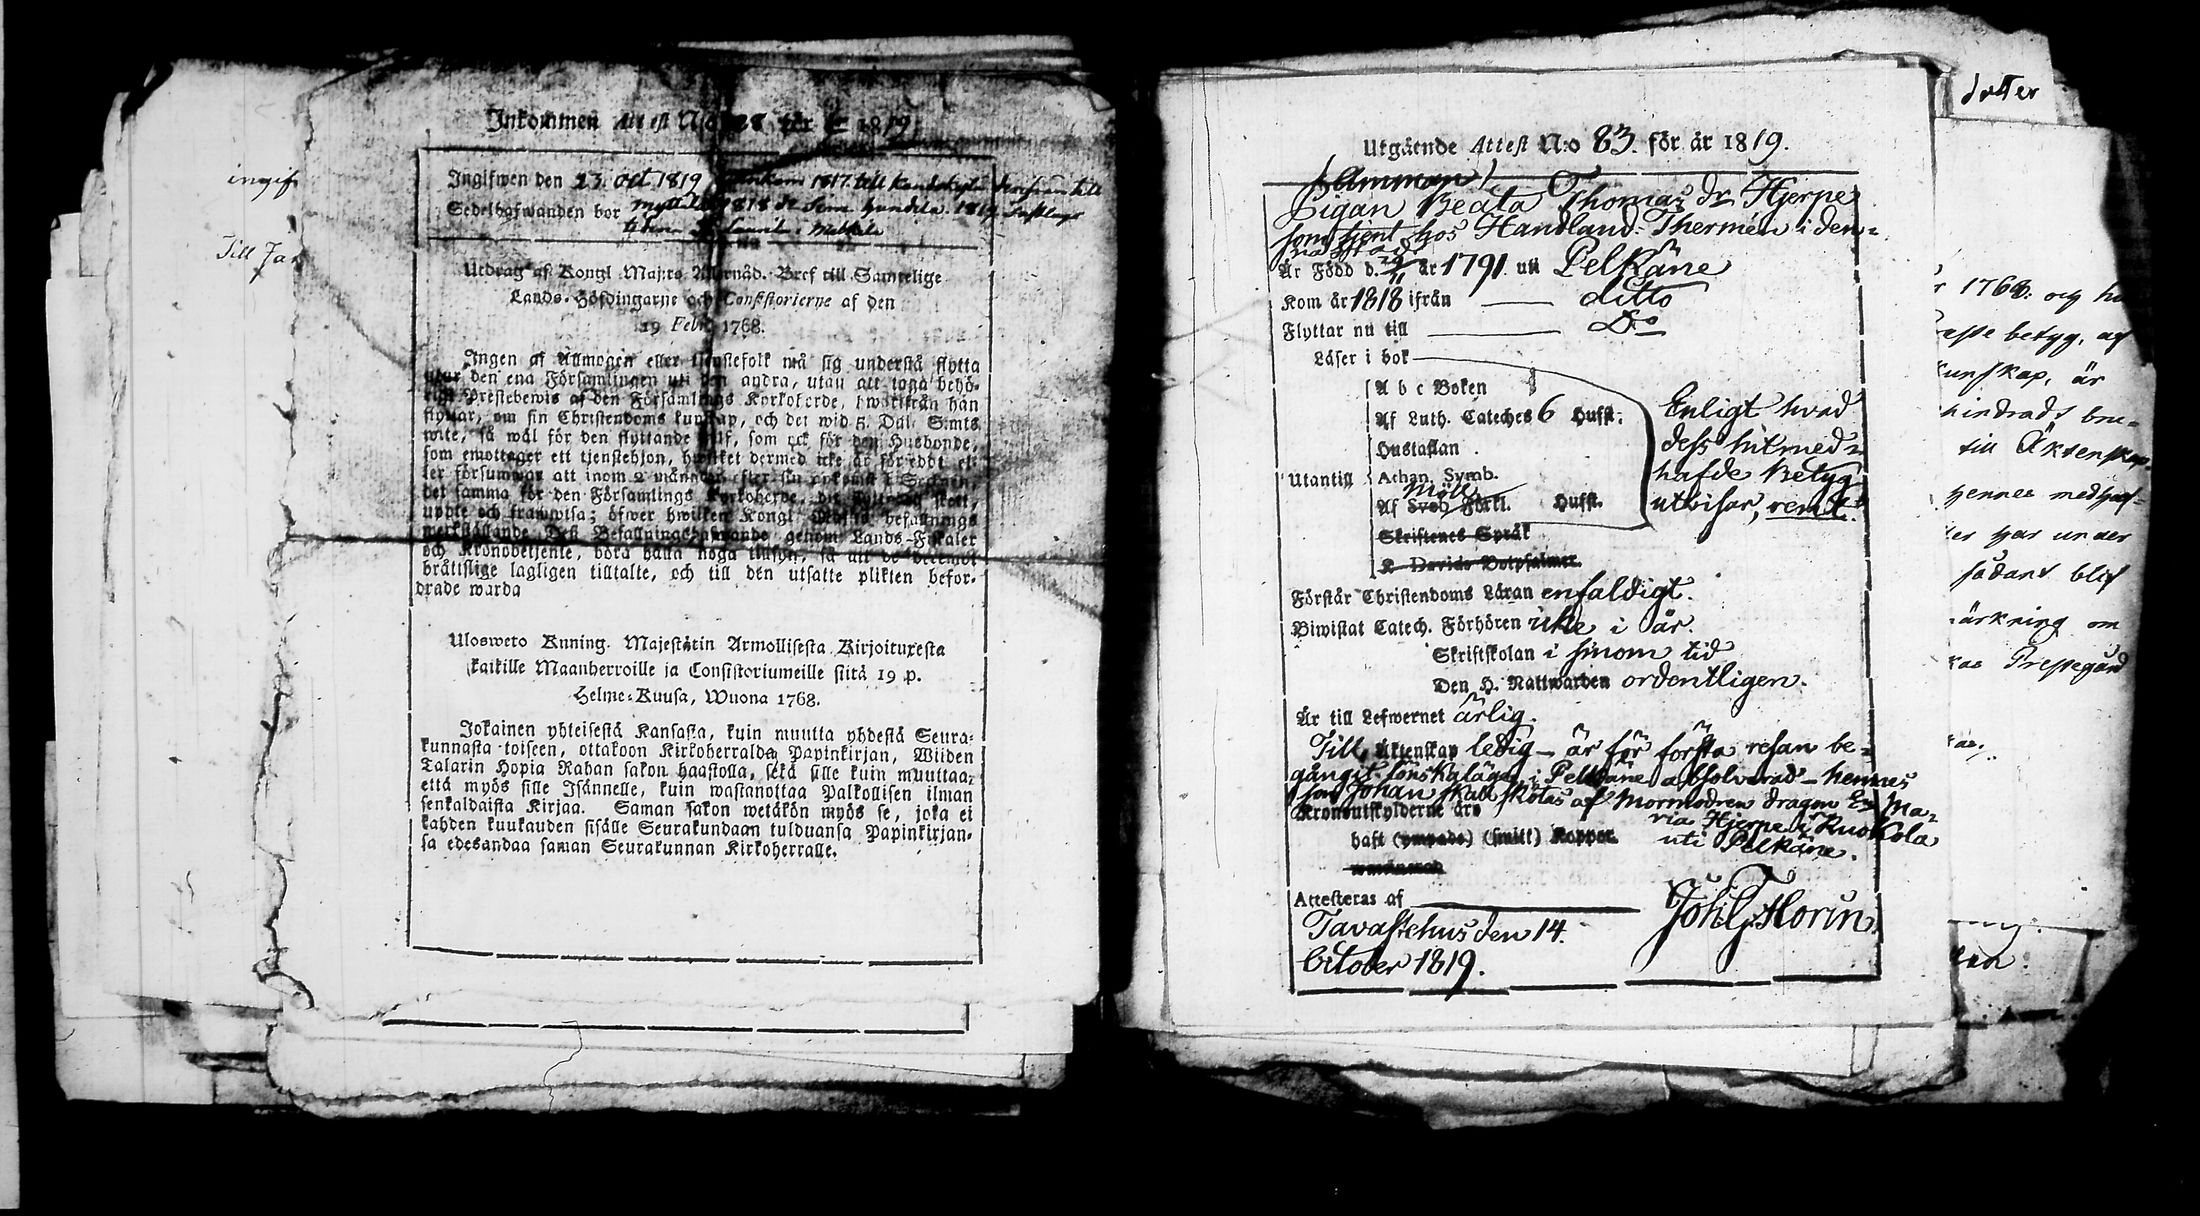 ingif
Till
Inkommen Attest N:o 28 för år 1819
Ingifwen den 23. Oct. 1819 1817 till
Sedelhafwanden bor 1818
Utdrag af Kongl. Maj:ts Allernåd. Bref till Samtelige
Lands-Höfdingarne och Consistorierne af den
19 Febr. 1768.
Ingen af Allmogen eller tjenstefolk må sig understå flytta
utur den ena Församlingen uti den andra, utan att taga behö-
rigt Prestebewis af den Församlings Kyrkoherde, hwarifrån han
flyttar, om sin Christendoms kunskap, och det wid 5. Dal. S:mts
wite, så wäl för den flyttande sielf, som ock för den Husbonde,
som emottager ett tjenstehjon, hwilket dermed icke är försedt el-
ler försummar att inom 2 månader efter sin ankomst i Socknen,
det samma för den Församlings Kyrkoherde, dit flyttning skett,
uppte och framwisa; öfwer hwilken Kongl. Maj:ts befallnings
werkställande Dess Befallningshafwande genom Lands-Fiskaler
och Kronobetjente, böra hålla noga tillsyn, så att de deremot
bråttslige lagligen tilltalte, och till den utsatte plikten befor-
drade warda
Ulosweto Kuning. Majestätin Armollisesta Kirjoituxesta
kaikille Maanherroille ja Consistoriumeille siitä 19 p.
Helme-Kuusa, Wuona 1768.
Jokainen yhteisestä Kansasta, kuin muutta yhdestä Seura-
kunnasta toiseen, ottakoon Kirkoherralda Papinkirjan, Wiiden
Talarin Hopia Rahan sakon haastolla, sekä sille kuin muuttaa,
että myös sille Isännelle, kuin wastanottaa Palkollisen ilman
senkaldaista Kirjaa. Saman sakon wetäkön myös se, joka ei
kahden kuukauden sisälle Seurakundaan tulduansa Papinkirjan-
sa edesandaa saman Seurakunnan Kirkoherralle.
Utgående Attest N:o 83. för år 1819.
(Amman)
Pigan Beata Thomas dr Hjerpe
som tjent hos Handland. Thermén i den-
na stad
Är Född d. 29/11 år 1791 uti Pelkäne
Kom år 1818 ifrån ditto
Flyttar nu till Do
Läser i bok
A b c Boken
Af Luth. Cateches 6 Hufst.
Hustaflan
Utantill Athan. Symb.
Möll.
Af Sveb. Förkl. Hufst.
Skriftenes Språk
K. Davids Botpsalmer.
Enligt hvad
dess hitmed-
hafde Betyg
utvisar, rent.
Förstår Christendoms Läran enfaldigt.
Biwistat Catech. Förhören icke i år.
Skriftskolan i sinom tid
Den H. Nattwarden ordentligen.
Är till Lefwernet ärlig.
Till Äktenskap ledig – är för första resan be-
gångit lönskaläge i Pelkäne absolverad – hennes
son Johan skall skötas af Mormodren dragon E. Ma-
Kronoutskylderne äro
ria Hjerpe i Ruokola
haft (ympade) (smitt) Koppor
uti Pelkäne.
Attesteras af
Tavastehus den 14.
October 1819.
Joh. G. Florin
dotter
och
betyg, af
kunskap, är
hindrads bru-
till Äktenskap
hennes
har under
sådant blif
märkning om
Prestegård